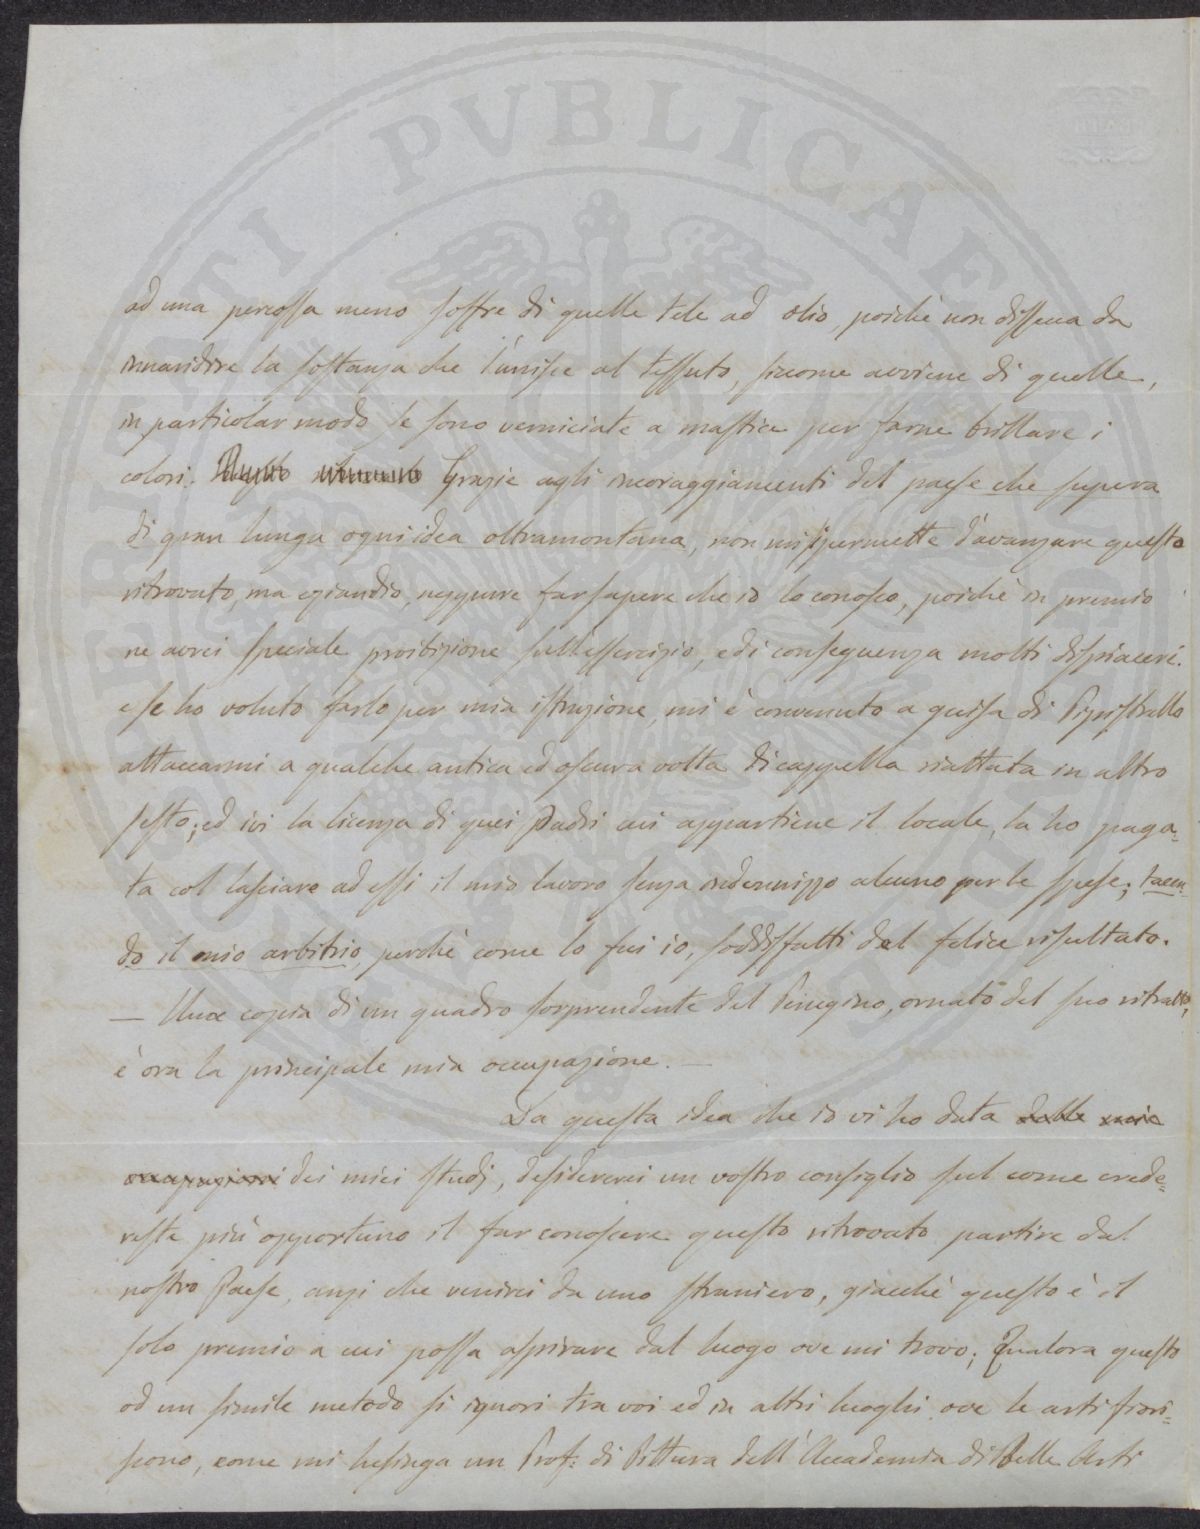 ad una percossa meno soffre di quelle tele ad olio, poichè non dissecca da
innaridire la sostanza che l'unisce al tessuto, siccome avviene di quelle,
in particolar modo se sono verniciate a mastice per farne brillare i
colori. Grazie agli incoraggiamenti del paese che supera
di gran lunga ogni idea oltramontana, non mi si permette d'avanzare questo
ritrovato, ma eziandio, neppure far sapere che io lo conosco, poichè in premio
ne avrei speciale proibizione sull'essercizio, e di conseguenza molti dispiaceri.
e se ho voluto farlo per mia istruzione, mi è convenuto a guisa di Pipistrello
attaccarmi a qualche antica ed oscura volta di cappella riattata in altro
sesto; ed ivi la licenza di quei Padri cui appartiene il locale, la ho paga=
ta col lasciare ad essi il mio lavoro senza indennizzo alcuno per le spese; tacen=
do il mio arbitrio, perchè come lo fui io, soddisfatti del felice risultato.
— Una copia di un quadro sorprendente del Perugino, ornato del suo ritratto,
è ora la principale mia occupazione. —
Da questa idea che io vi ho data dalle mie
occupazioni dei miei studj, desidererei un vostro consiglio sul come crede=
reste più opportuno il far conoscere questo ritrovato partire dal
nostro Paese, anzi che venirci da uno straniero, giacchè questo è il
solo premio a cui possa aspirare dal luogo ove mi trovo; Qualora questo
od un simile metodo si ignori tra voi ed in altri luoghi ove le arti fiori=
scono, come mi lusinga un Prof: di Pittura dell'Accademia di Belle Arti